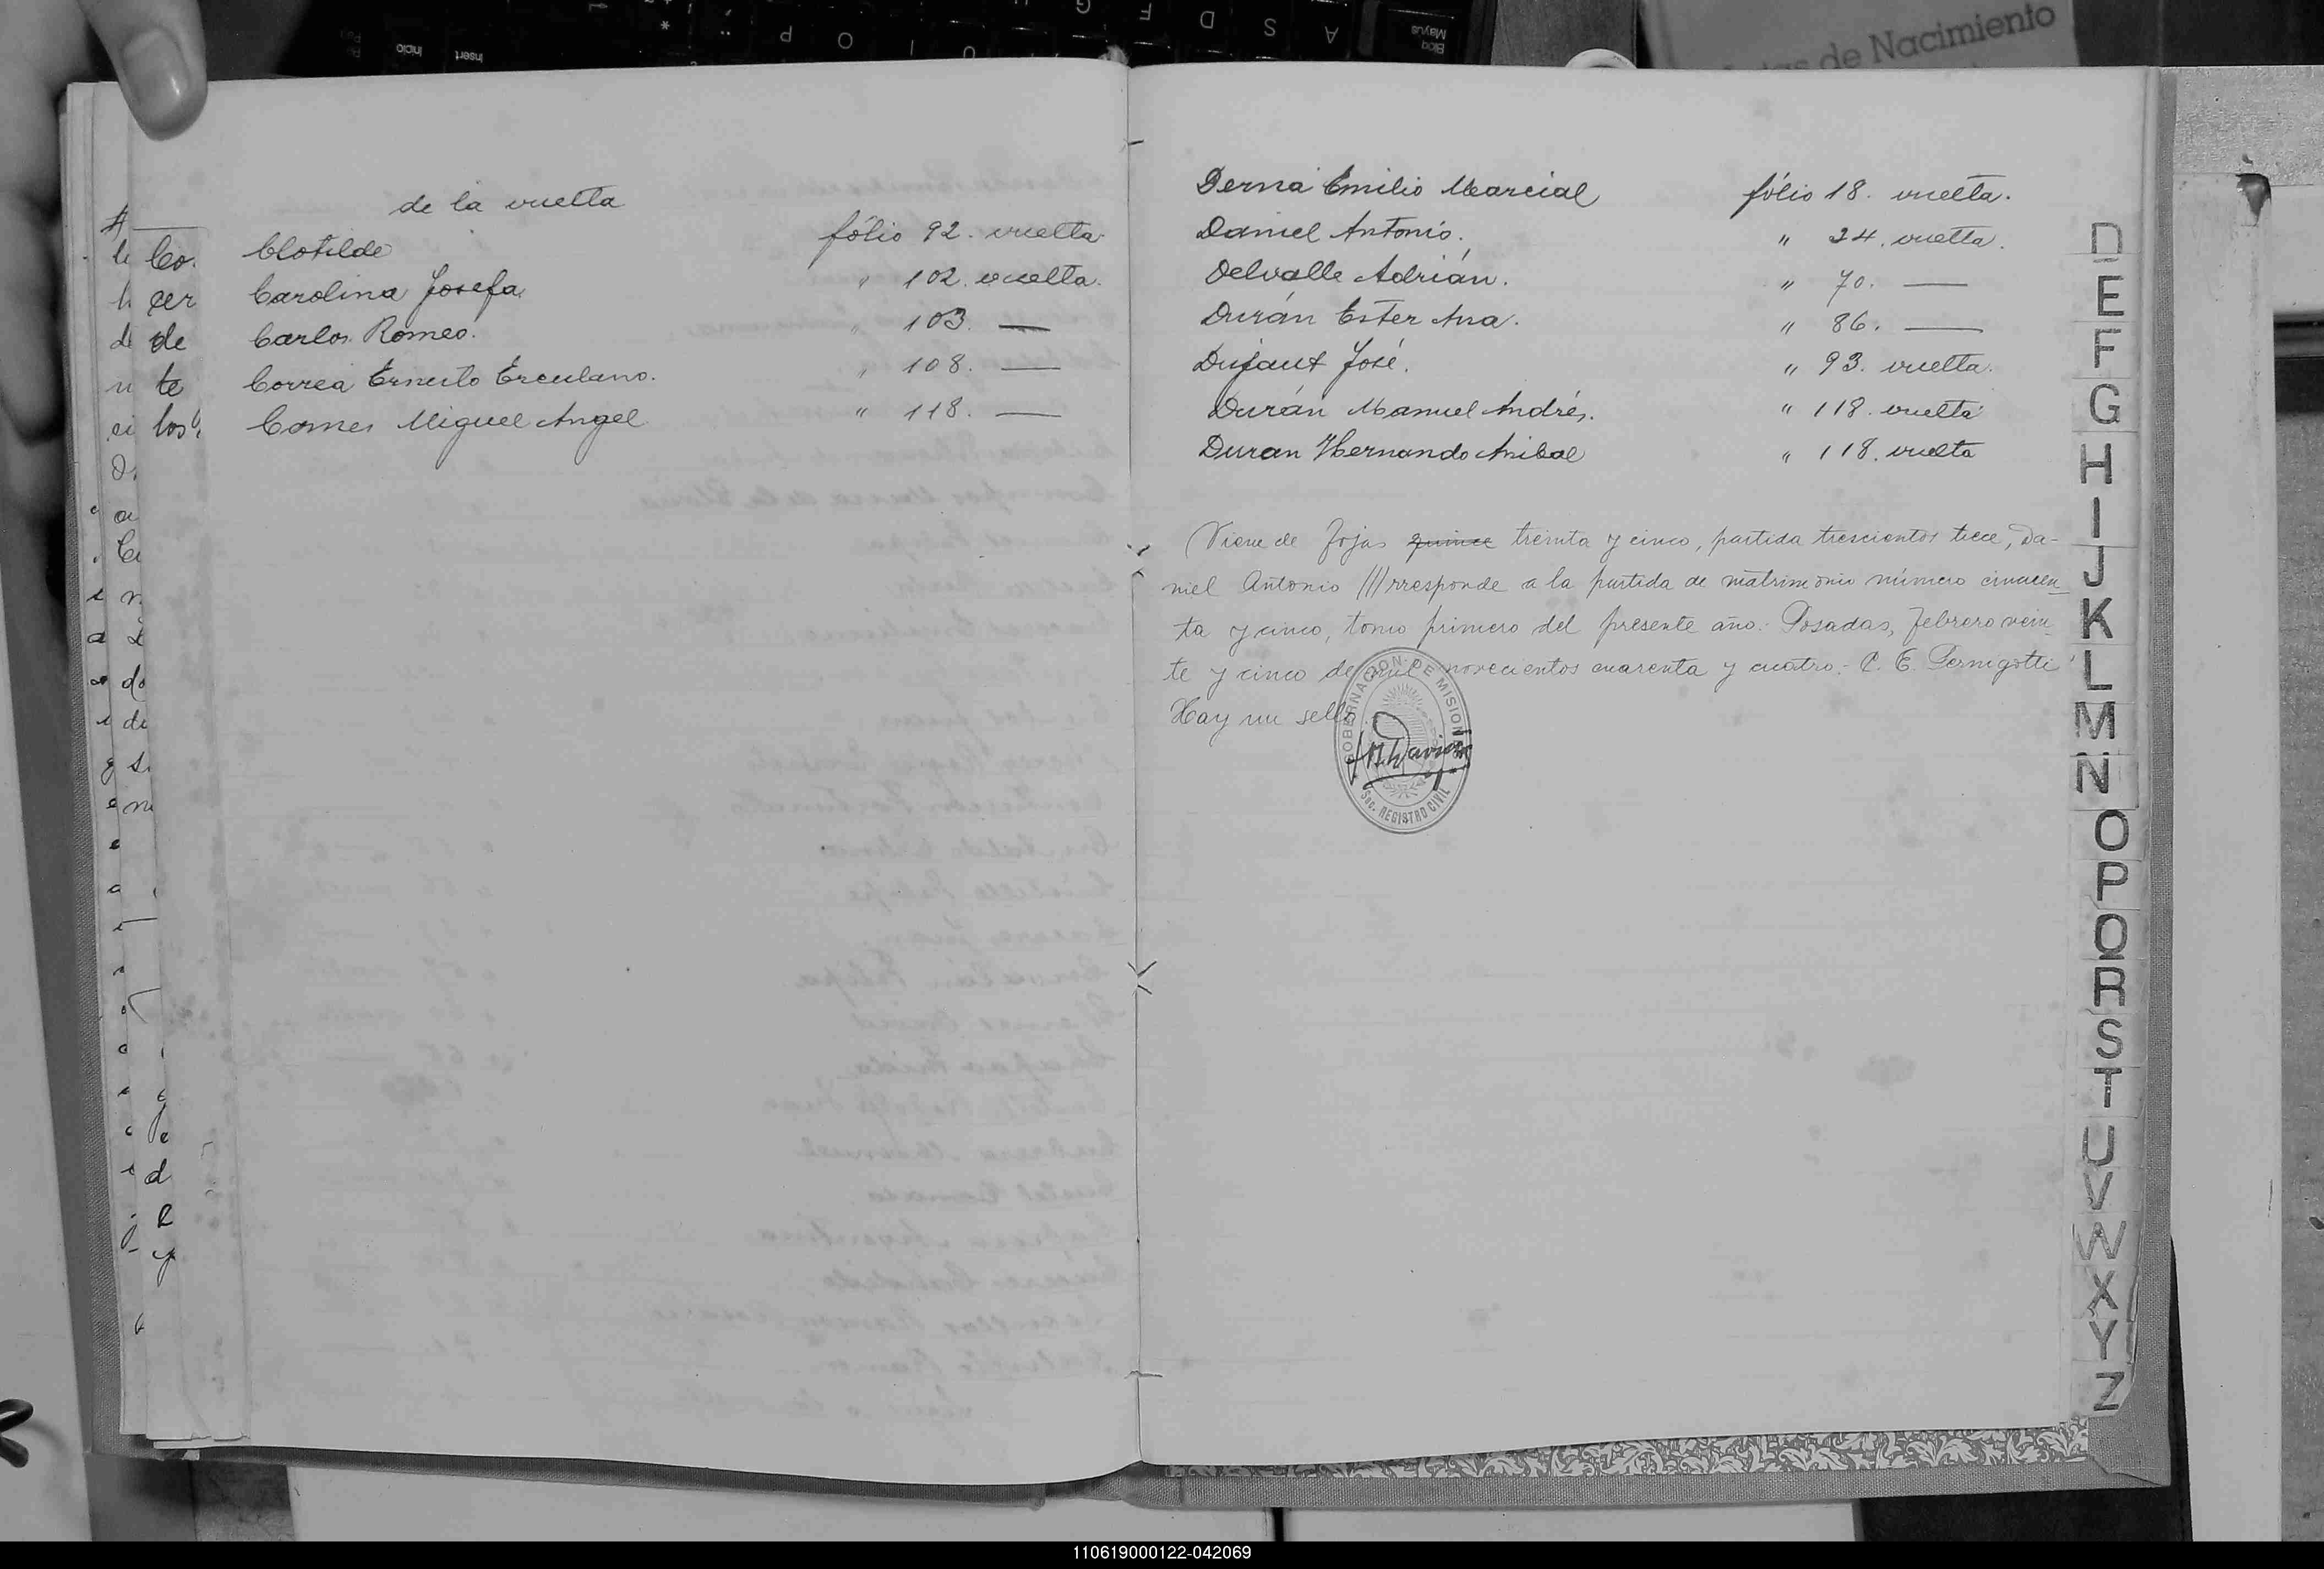 de la vuelta
Clotilde fólio 92. vuelta
Carolina Josefa " 102. vuelta.
Carlos Romeo. " 103. —
Correa Ernesto Erculano. " 108. —
Comes Miguel Angel " 118. —
Co.
cer
de
te
los
Derna Emilio Marcial fólio 18. vuelta.
Daniel Antonio. " 34. vuelta.
Delvalle Adrián. " 70. —
Durán Ester Ana. " 86. —
Dujaut José. " 93. vuelta.
Durán Manuel Andrés. " 118. vuelta
Duran Hernando Anibal " 118. vuelta
Viene de fojas quince treinta y cinco, partida trescientos trece, Da-
niel Antonio ///rresponde a la partida de matrimonio número cincuen-
ta y cinco, tomo primero del presente año.- Posadas, febrero vein-
te y cinco de mil novecientos cuarenta y cuatro.- C. E. Pernigotti
Hay un sello
GOBERNACION DE MISIONES
Sec. REGISTRO CIVIL
D
E
F
G
H
I
J
K
L
M
N
O
P
Q
R
S
T
U
V
W
X
Y
Z
de Nacimiento
Bloq Mayus
A S D F G
O P
Insert
Inicio
110619000122-042069